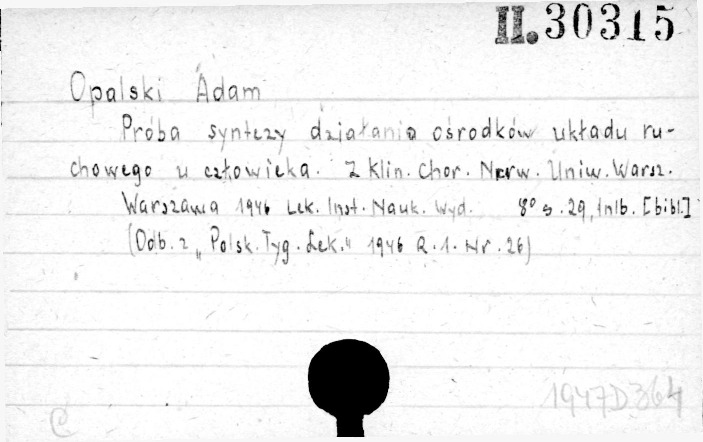 II. 30315
Opalski Adam
Próba syntezy działania ośrodków układu ru-
chowego u człowieka. Z Klin. Chor. Nerw. Uniw. Warsz.
Warszawa 1946 Lek. Inst. Nauk. Wyd. 8° s. 29, 1nlb. [bibl.]
(Odb. z „Polsk. Tyg. Lek." 1946 R. 1. Nr. 26)
1947D364
C